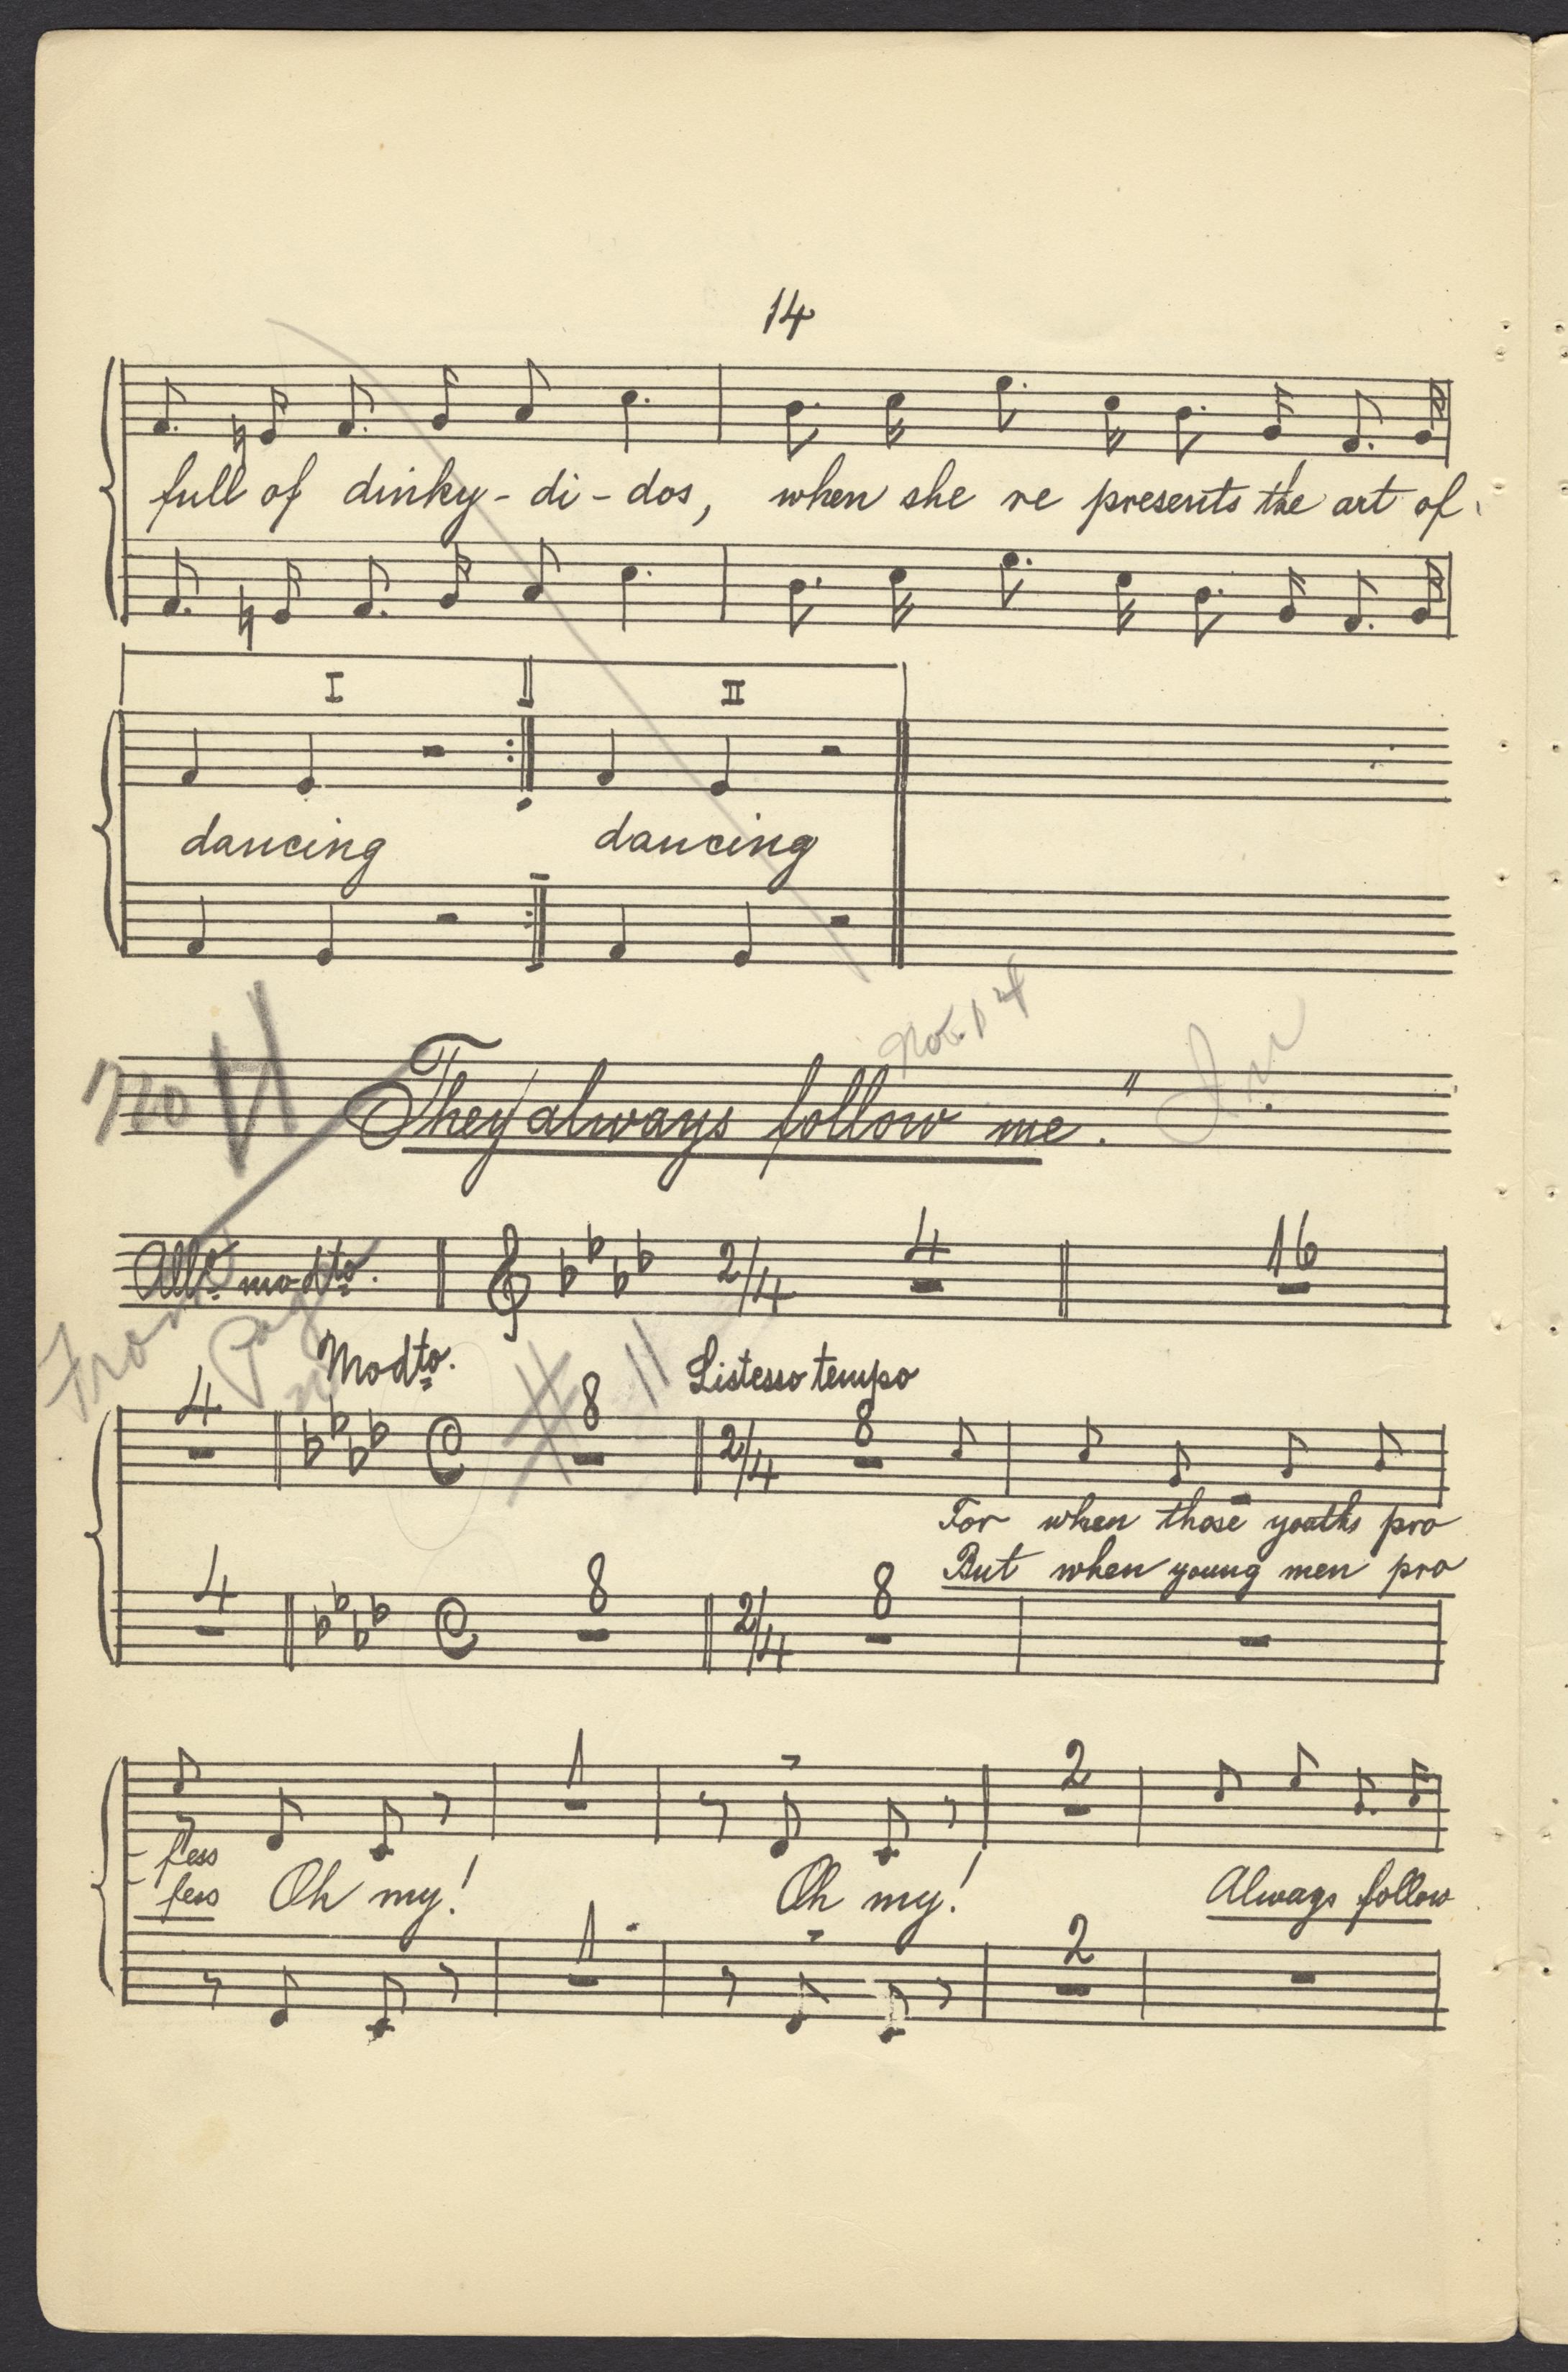 14
full of dinky-di-dos, when she re presents the art of
I II
dancing dancing
No 4
They always follow me."
All? modto. 2/4 4 16
From Page
Modto. # 11 Listesso tempo
4 8 2/4 8
For when those youths pro
But when young men pro
4 8 2/4 8
1 2
fess
fess Oh my! Oh my! Always follow
1 2